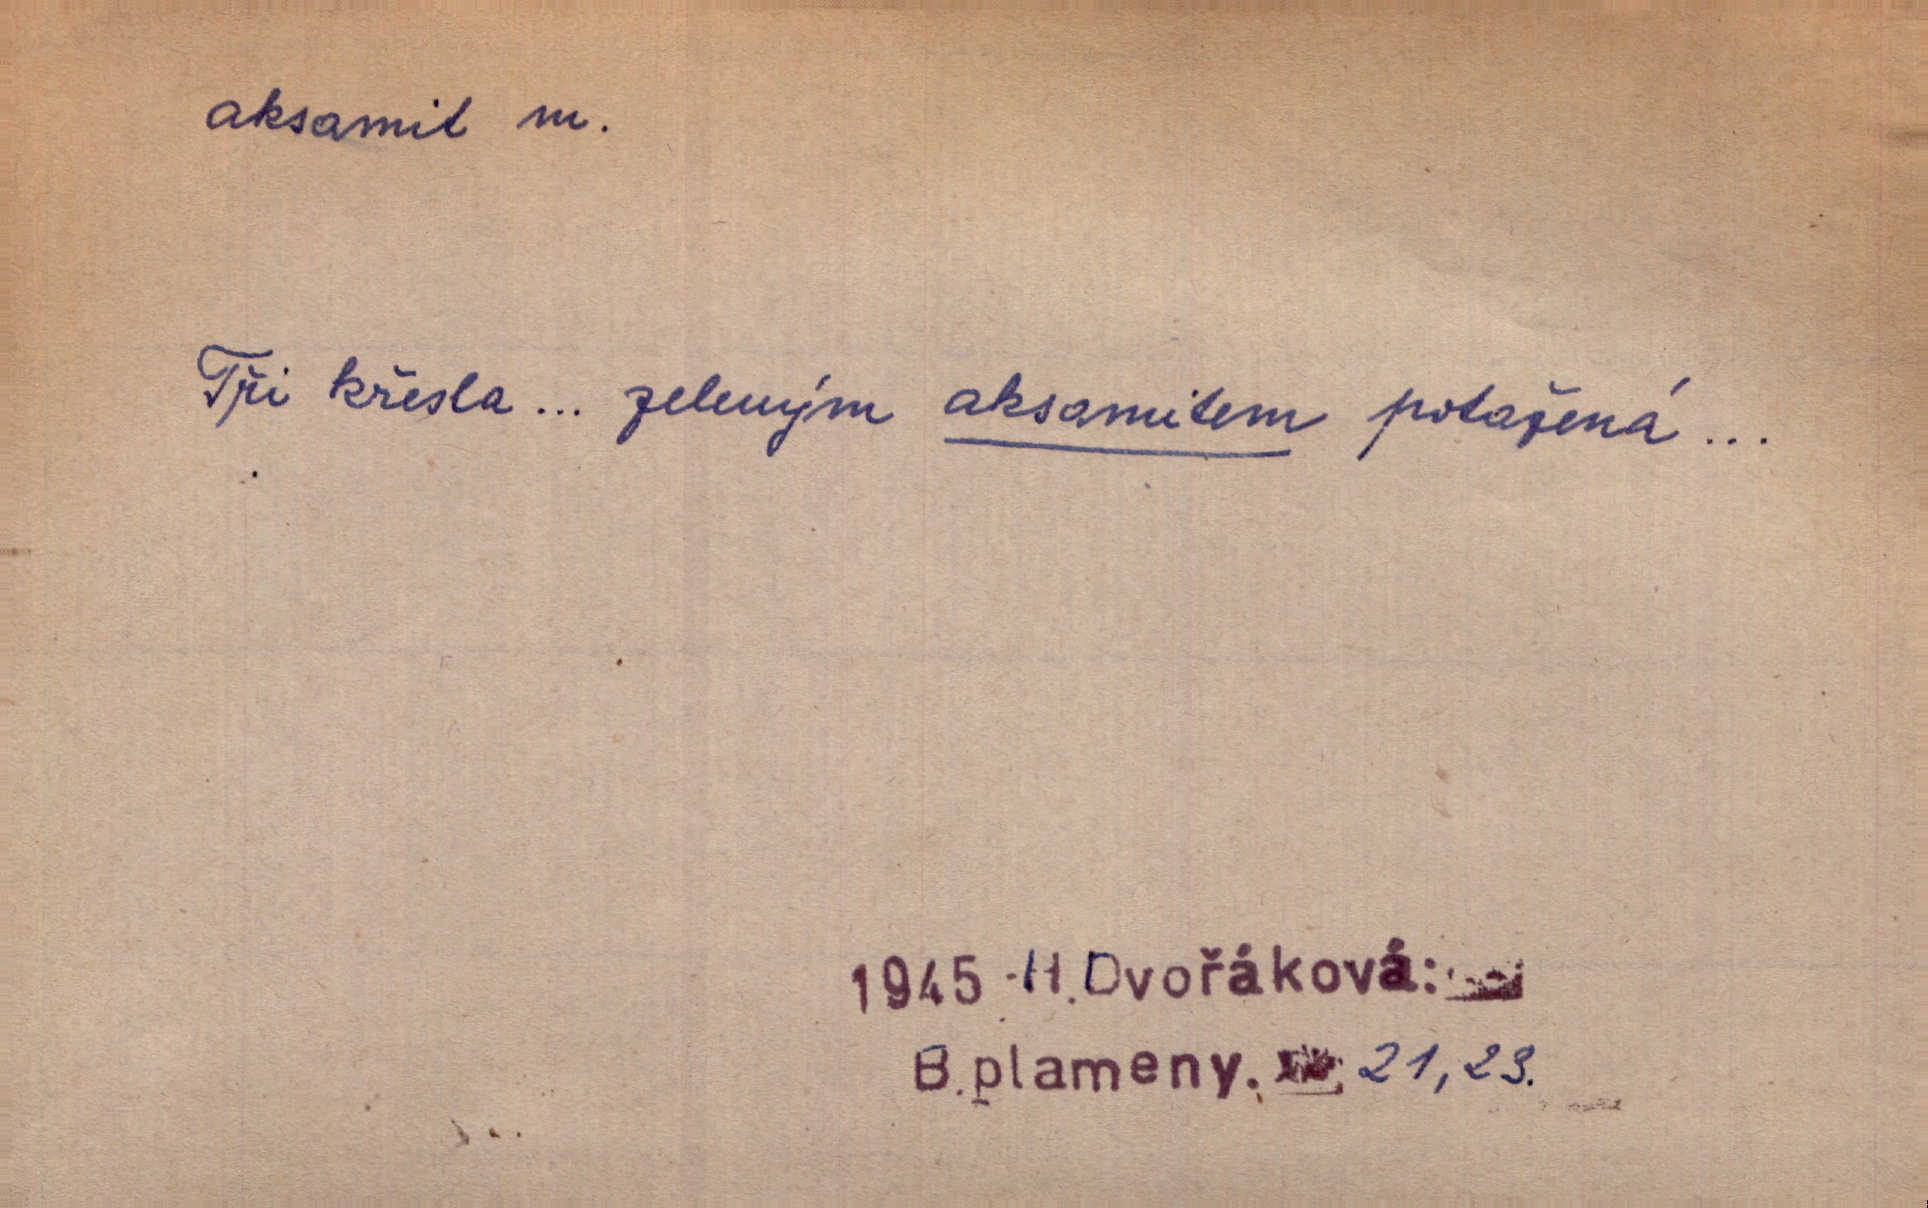 aksamit m.
Tři křesla... zeleným aksamitem potažená...
1945 H. Dvořáková:
B. plameny. 21, 23.